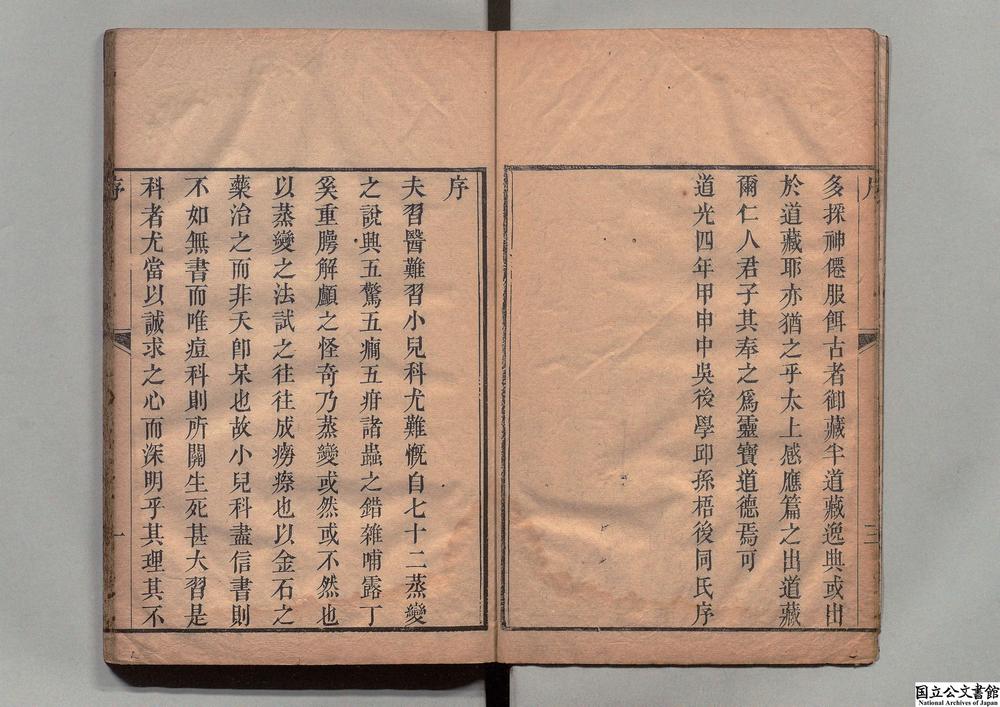 多探神僊服餌古者御藏半道藏逸典或出
於道藏耶亦猶之乎太上感應篇之出道藏
爾仁人君子其奉之爲靈寶道德焉可
道光四年甲申中吳後學邱孫梧後同氏序
三
序
夫習醫難習小兒科尤難慨自七十二蒸變
之說與五驚五癎五疳諸蟲之錯雜哺露丁
奚重腭解顱之怪奇乃蒸變或然或不然也
以蒸變之法試之往往成癆瘵也以金石之
藥治之而非夭卽呆也故小兒科盡信書則
不如無書而唯痘科則所關生死甚大習是
科者尤當以誠求之心而深明乎其理其不
序
一
国立公文書館
National Archives of Japan